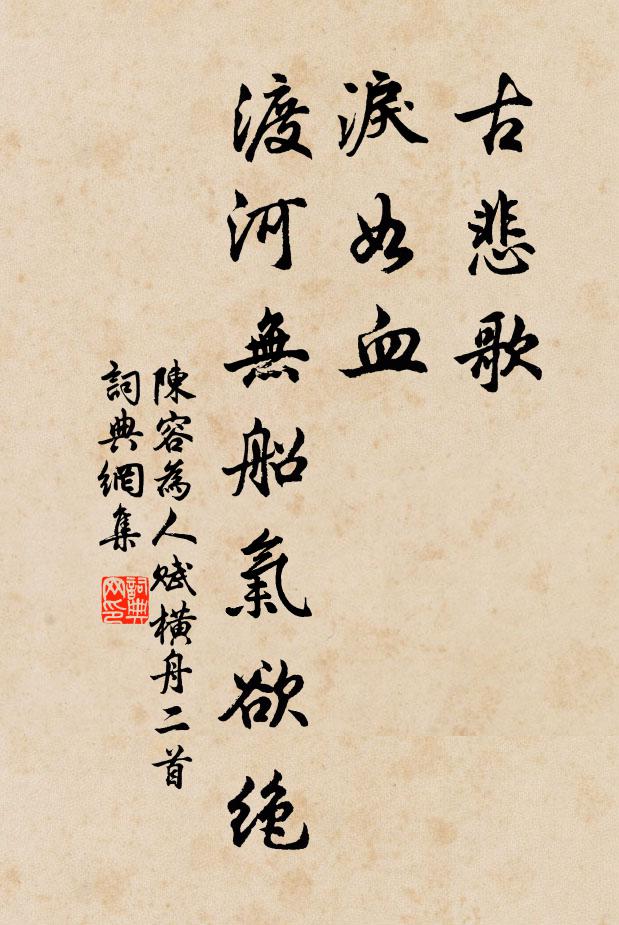 古悲歌
淚如血
渡河無船氣欲絕
陳容為人賦橫舟二首
詞典網集
詞典網印